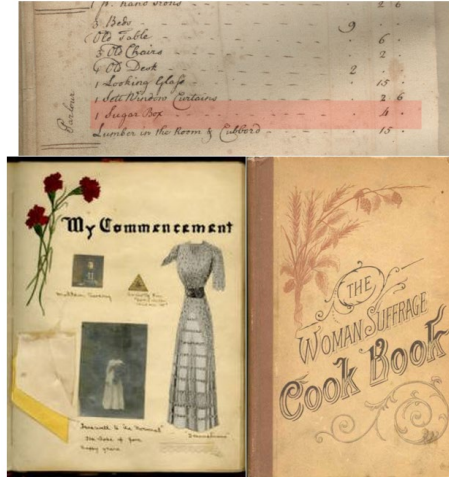 1 pr. hand Irons 2 6
5 Beds 9
Old Table 6 .
5 Old Chairs 2 .
Old Desk 2 .
1 Looking Glass 15 .
1 Sett Window Curtains 2 6
1 Sugar Box 4 .
Lumber in the Room & Cubberd 15 .
Parlour
My Commencement
Farewell to the "Normal"
The close of four
happy years
THE
WOMAN SUFFRAGE
Cook Book